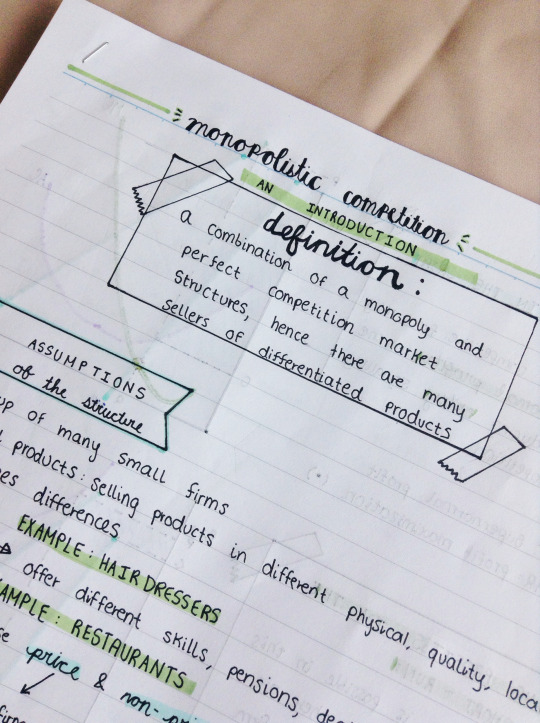 monopolistic competition
AN INTRODUCTION
definition:
a combination of a monopoly and
perfect competition market
structures, hence there are many
sellers of differentiated products
ASSUMPTIONS
of the structure
of many small firms
products: selling products in different physical, quality, loca
differences
EXAMPLE: HAIRDRESSERS
offer different skills, pensions,
EXAMPLE: RESTAURANTS
price & non-